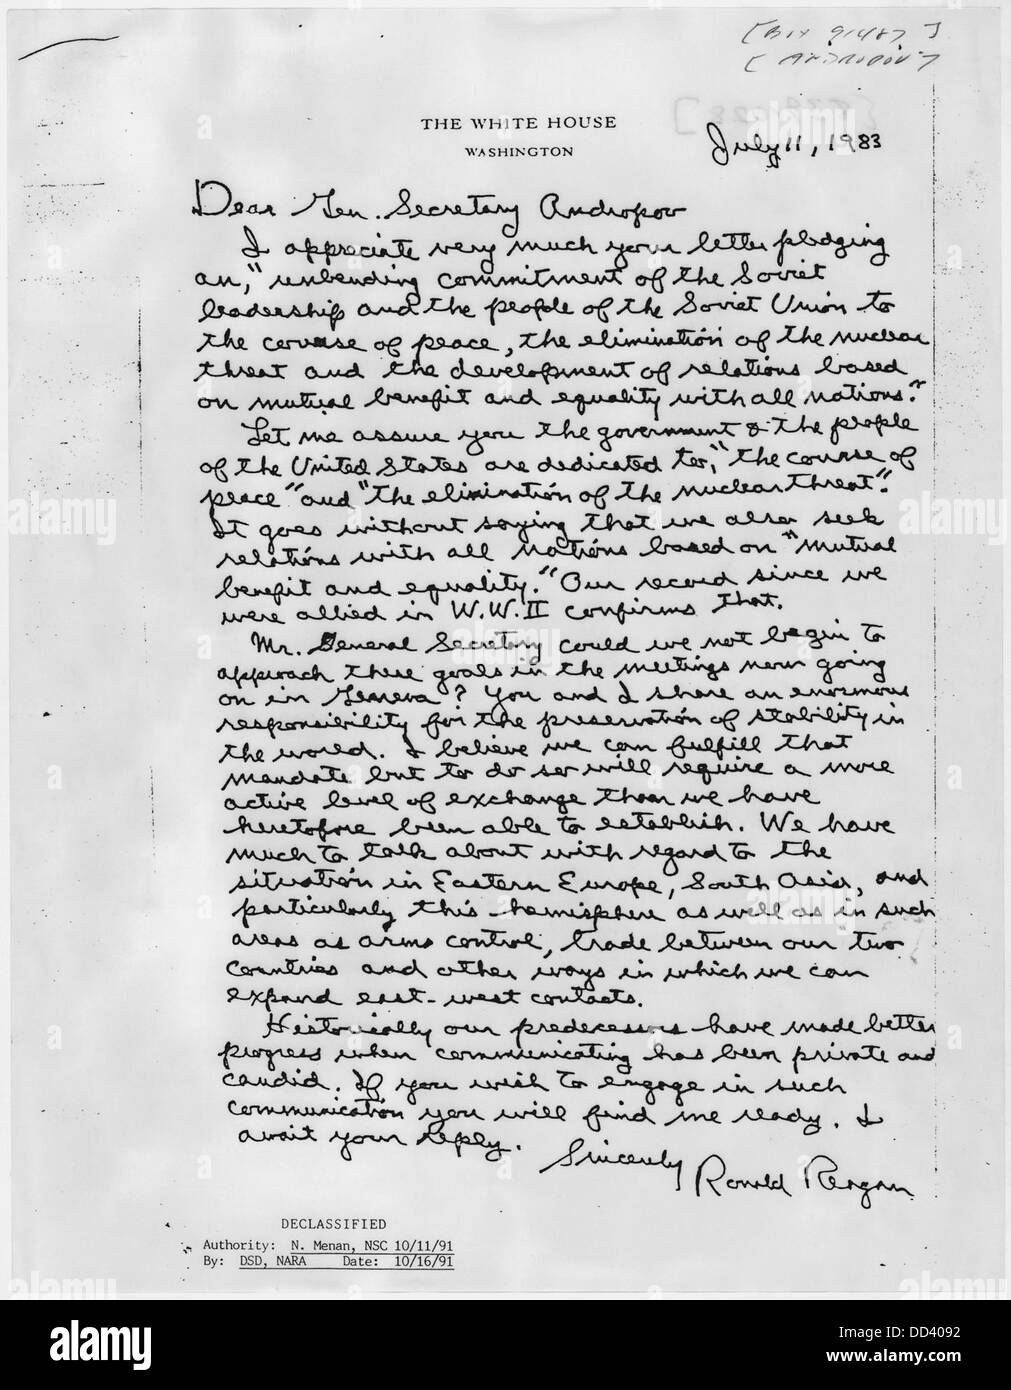 [Box 91487]
[ANDROPOV]
THE WHITE HOUSE
WASHINGTON
July 11, 1983
Dear Gen. Secretary Andropov
I appreciate very much your letter pledging
an, "unbending commitment of the Soviet
leadership and the people of the Soviet Union to
the course of peace, the elimination of the nuclear
threat and the development of relations based
on mutual benefit and equality with all nations."
Let me assure you the government & the people
of the United States are dedicated to, "the course of
peace" and "the elimination of the nuclear threat".
It goes without saying that we also seek
relations with all nations based on "mutual
benefit and equality." Our record since we
were allied in W.W.II confirms that.
Mr. General Secretary could we not begin to
approach these goals in the meetings now going
on in Geneva? You and I share an enormous
responsibility for the preservation of stability in
the world. I believe we can fulfill that
mandate but to do so will require a more
active level of exchange than we have
heretofore been able to establish. We have
much to talk about with regard to the
situation in Eastern Europe, South Asia, and
particularly this hemisphere as well as in such
areas as arms control, trade between our two
countries and other ways in which we can
expand east-west contacts.
Historically our predecessors have made better
progress when communicating has been private and
candid. If you wish to engage in such
communication you will find me ready. I
await your reply.
Sincerely Ronald Reagan
DECLASSIFIED
Authority: N. Menan, NSC 10/11/91
By: DSD, NARA Date: 10/16/91
alamy
Image ID: DD4092
www.alamy.com